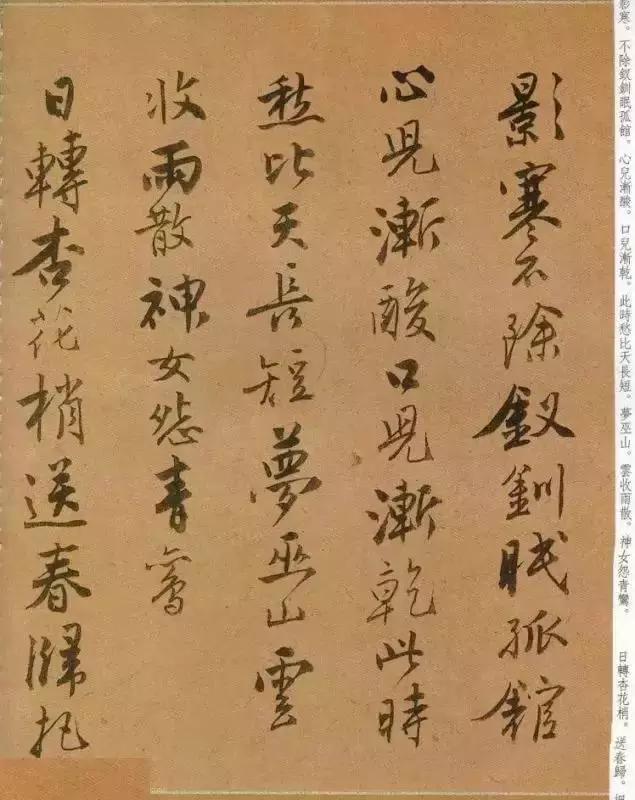 影寒不除釵釧眠孤館
心児漸酸口児漸乾此時
愁比天長短夢巫山雲
收雨散神女怨青鸞
日轉杏花梢送春歸把
影寒。不除釵釧眠孤館。心兒漸酸。口兒漸乾。此時愁比天長短。夢巫山。雲收雨散。神女怨青鸞。　日轉杏花梢。送春歸。把